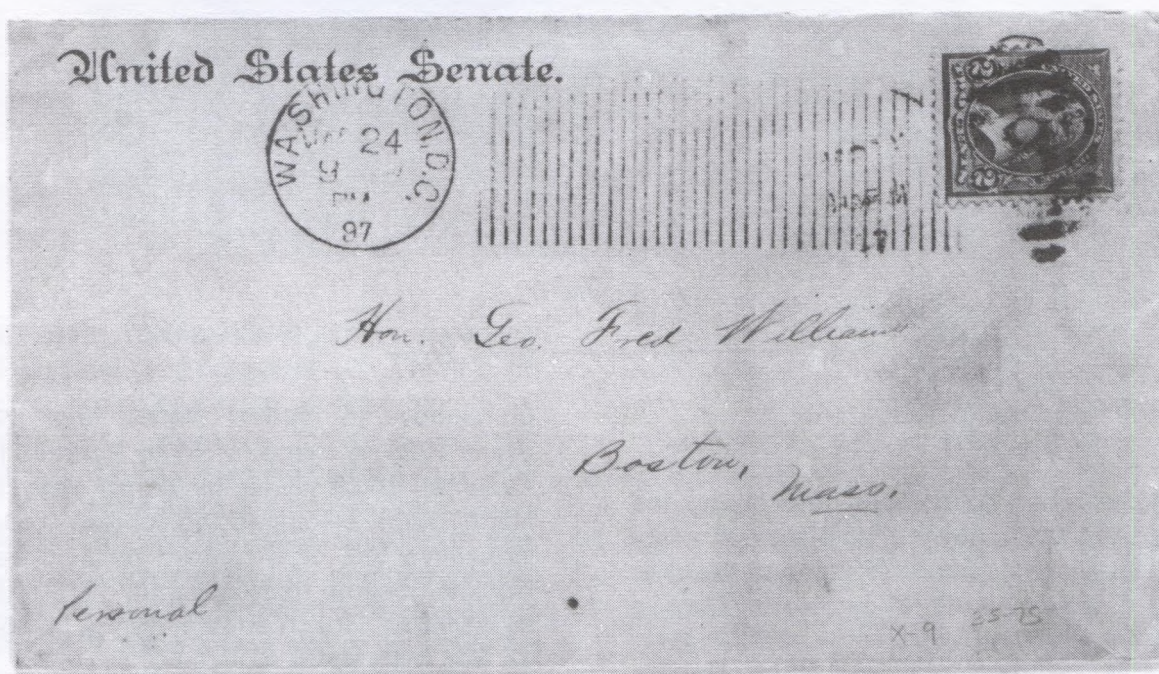 United States Senate.
WASHINGTON, D.C.
24
9
PM
97
Hon. Geo. Fred Williams
Boston,
Mass.
Personal
X-9 35-75